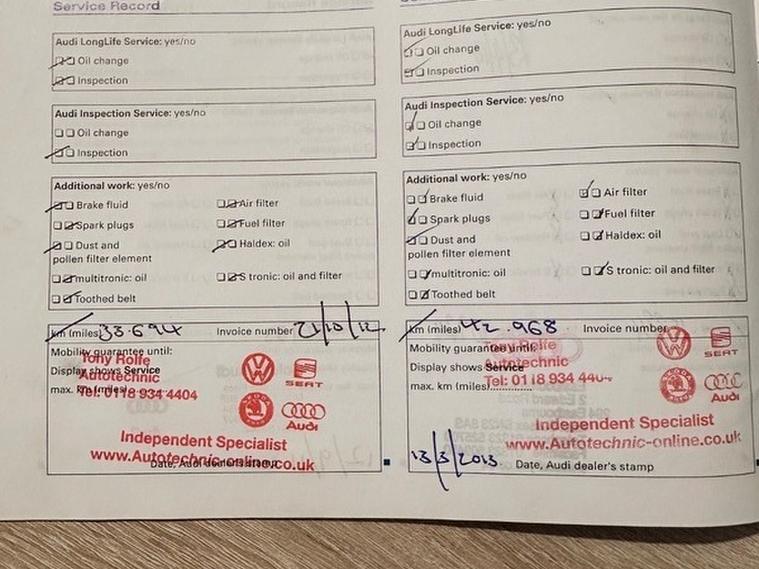 Service Record
Audi LongLife Service: yes/no
Oil change
Inspection
Audi Inspection Service: yes/no
Oil change
Inspection
Additional work: yes/no
Brake fluid
Air filter
Spark plugs
Fuel filter
Dust and
pollen filter element
Haldex: oil
multitronic: oil
S tronic: oil and filter
Toothed belt
km (miles) 33.694
Invoice number 21/10/12
Mobility guarantee until:
Tony Rolfe
Display shows Service
Autotechnic
max. km (miles)
Tel: 0118 934 4404
SEAT
SKODA
Audi
Independent Specialist
www.Autotechnic-online.co.uk
Date, Audi dealer's stamp
Audi LongLife Service: yes/no
Oil change
Inspection
Audi Inspection Service: yes/no
Oil change
Inspection
Additional work: yes/no
Brake fluid
Air filter
Spark plugs
Fuel filter
Dust and
pollen filter element
Haldex: oil
multitronic: oil
S tronic: oil and filter
Toothed belt
km (miles) 42.968
Invoice number
Mobility guarantee until:
Tony Rolfe
Display shows Service
Autotechnic
max. km (miles)
Tel: 0118 934 440
SEAT
SKODA
Audi
Independent Specialist
www.Autotechnic-online.co.uk
13/3/2013
Date, Audi dealer's stamp